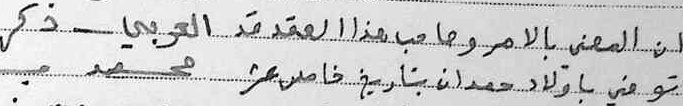 ان المعني بالامر وصاحب هذا العقد قد العربي ــ ذكر
توفي باولاد حمدان بتاريخ خامس عشر محمد